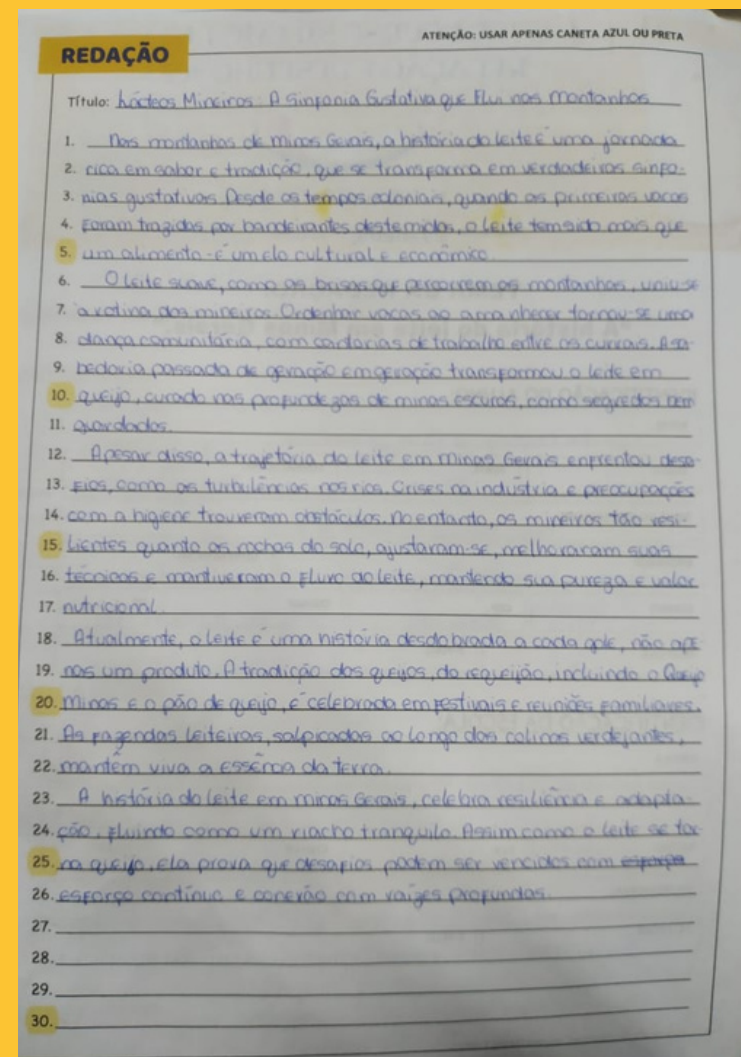 ATENÇÃO: USAR APENAS CANETA AZUL OU PRETA
REDAÇÃO
Título: Lácteos Mineiros: A Sinfonia Gustativa que Flui nas montanhas
1. Nas montanhas de minas Gerais, a história do leite é uma jornada
2. rica em sabor e tradição, que se transforma em verdadeiras sinfo-
3. nias gustativas. Desde os tempos coloniais, quando as primeiras vacas
4. foram trazidas por bandeirantes destemidos, o leite tem sido mais que
5. um alimento - é um elo cultural e econômico.
6. O leite suave, como as brisas que percorrem as montanhas, uniu-se
7. a rotina dos mineiros. Ordenhar vacas ao amanhecer tornou-se uma
8. dança comunitária, com cantorias de trabalho entre os currais. A sa-
9. bedoria passada de geração em geração transformou o leite em
10. queijo, curado nas profundezas de minas escuras, como segredos bem
11. guardados.
12. Apesar disso, a trajetória do leite em minas Gerais enfrentou desa-
13. fios, como as turbulências nos rios. Crises na indústria e preocupações
14. com a higiene trouxeram obstáculos. no entanto, os mineiros tão resi-
15. lientes quanto as rochas do solo, ajustaram-se, melhoraram suas
16. técnicas e mantiveram o fluxo do leite, mantendo sua pureza e valor
17. nutricional.
18. Atualmente, o leite é uma história desdobrada a cada gole, não ape
19. nas um produto. A tradição dos queijos, do requeijão, incluindo o Queijo
20. Minas e o pão de queijo, é celebrada em festivais e reuniões familiares.
21. As fazendas leiteiras, salpicadas ao longo das colinas verdejantes,
22. mantêm viva a essência da terra.
23. A história do leite em minas Gerais, celebra resiliência e adapta-
24. ção, fluindo como um riacho tranquilo. Assim como o leite se tor
25. na queijo, ela prova que desafios podem ser vencidos com esforço
26. esforço contínuo e conexão com raízes profundas.
27.
28.
29.
30.